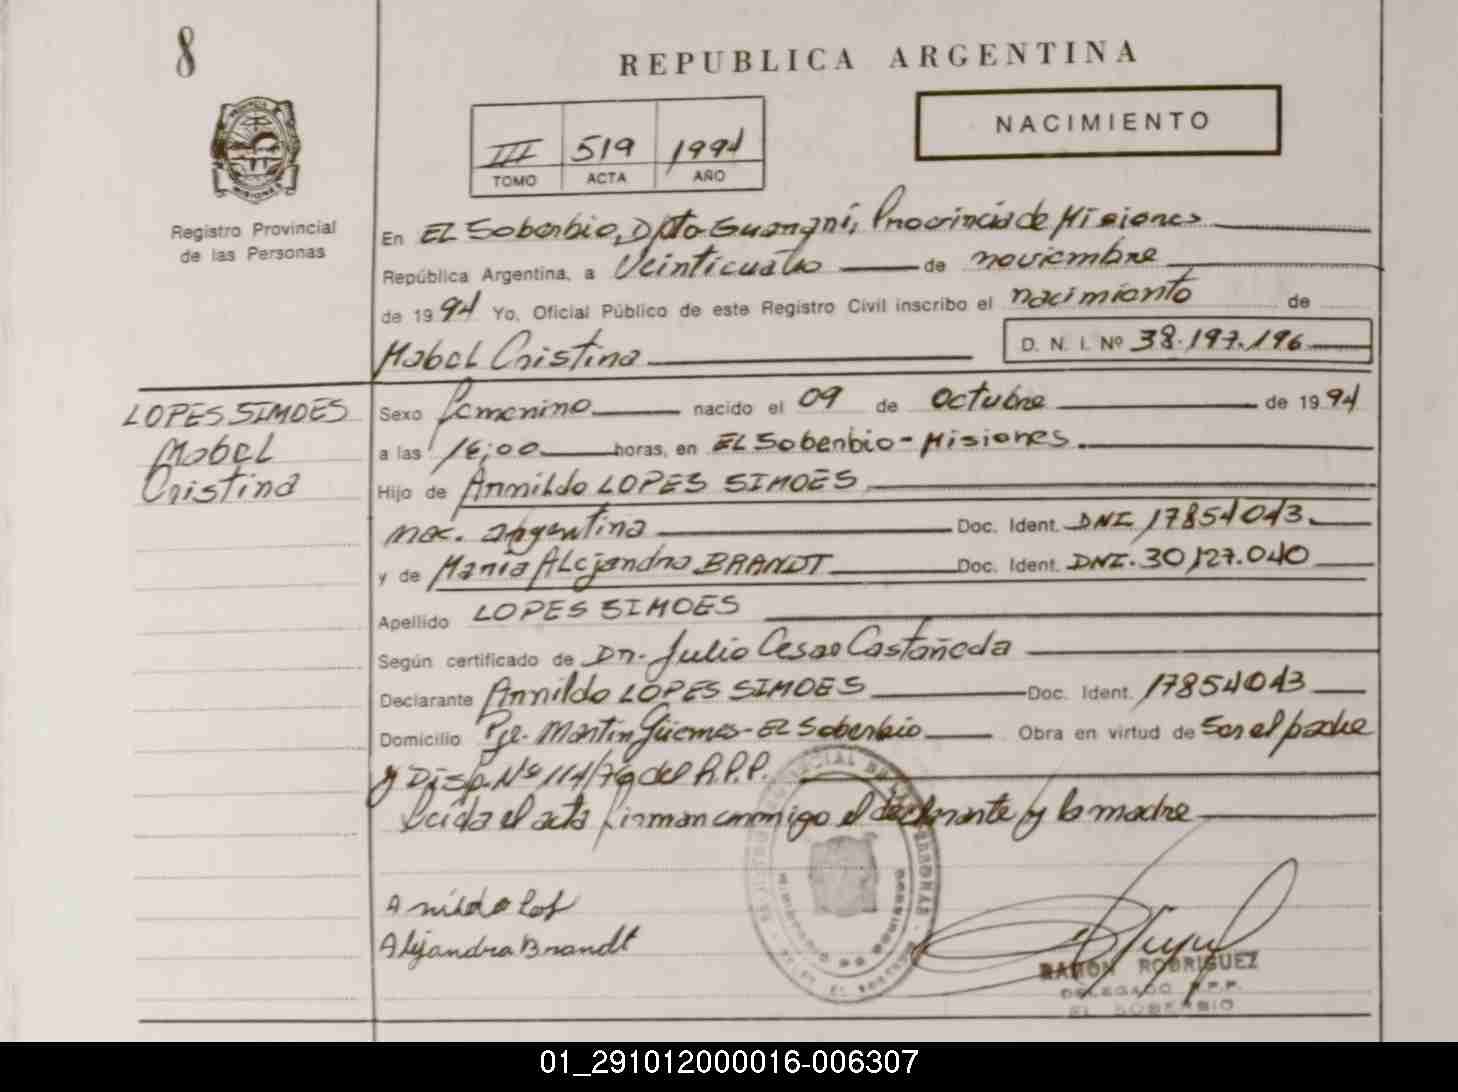 8
REPUBLICA ARGENTINA
NACIMIENTO
III 519 1994
TOMO ACTA AÑO
Registro Provincial
de las Personas
En EL Soberbio, Dpto Guaraní, Provincia de Misiones
República Argentina, a Veinticuatro de noviembre
de 1994 Yo, Oficial Público de este Registro Civil inscribo el nacimiento de
Mabel Cristina D. N. I. Nº 38.197.196
LOPES SIMOES
Mabel
Cristina
Sexo femenino nacido el 09 de octubre de 1994
a las 16,00 horas, en EL Soberbio - Misiones
Hijo de Arnildo LOPES SIMOES
nac. argentina Doc. Ident. DNI. 17854043
y de Maria Alejandra BRANDT Doc. Ident. DNI. 30.127.040
Apellido LOPES SIMOES
Según certificado de Dr. Julio Cesar Castañeda
Declarante Arnildo LOPES SIMOES Doc. Ident. 17854043
Domicilio Pje. Martin Güemes - EL Soberbio Obra en virtud de ser el padre
y Disp. Nº 114/79 del R.P.P.
Leida el acta firman conmigo el declarante y la madre
Alejandra Brandt
RAMON RODRIGUEZ
DELEGADO R.P.P.
EL SOBERBIO
01_291012000016-006307